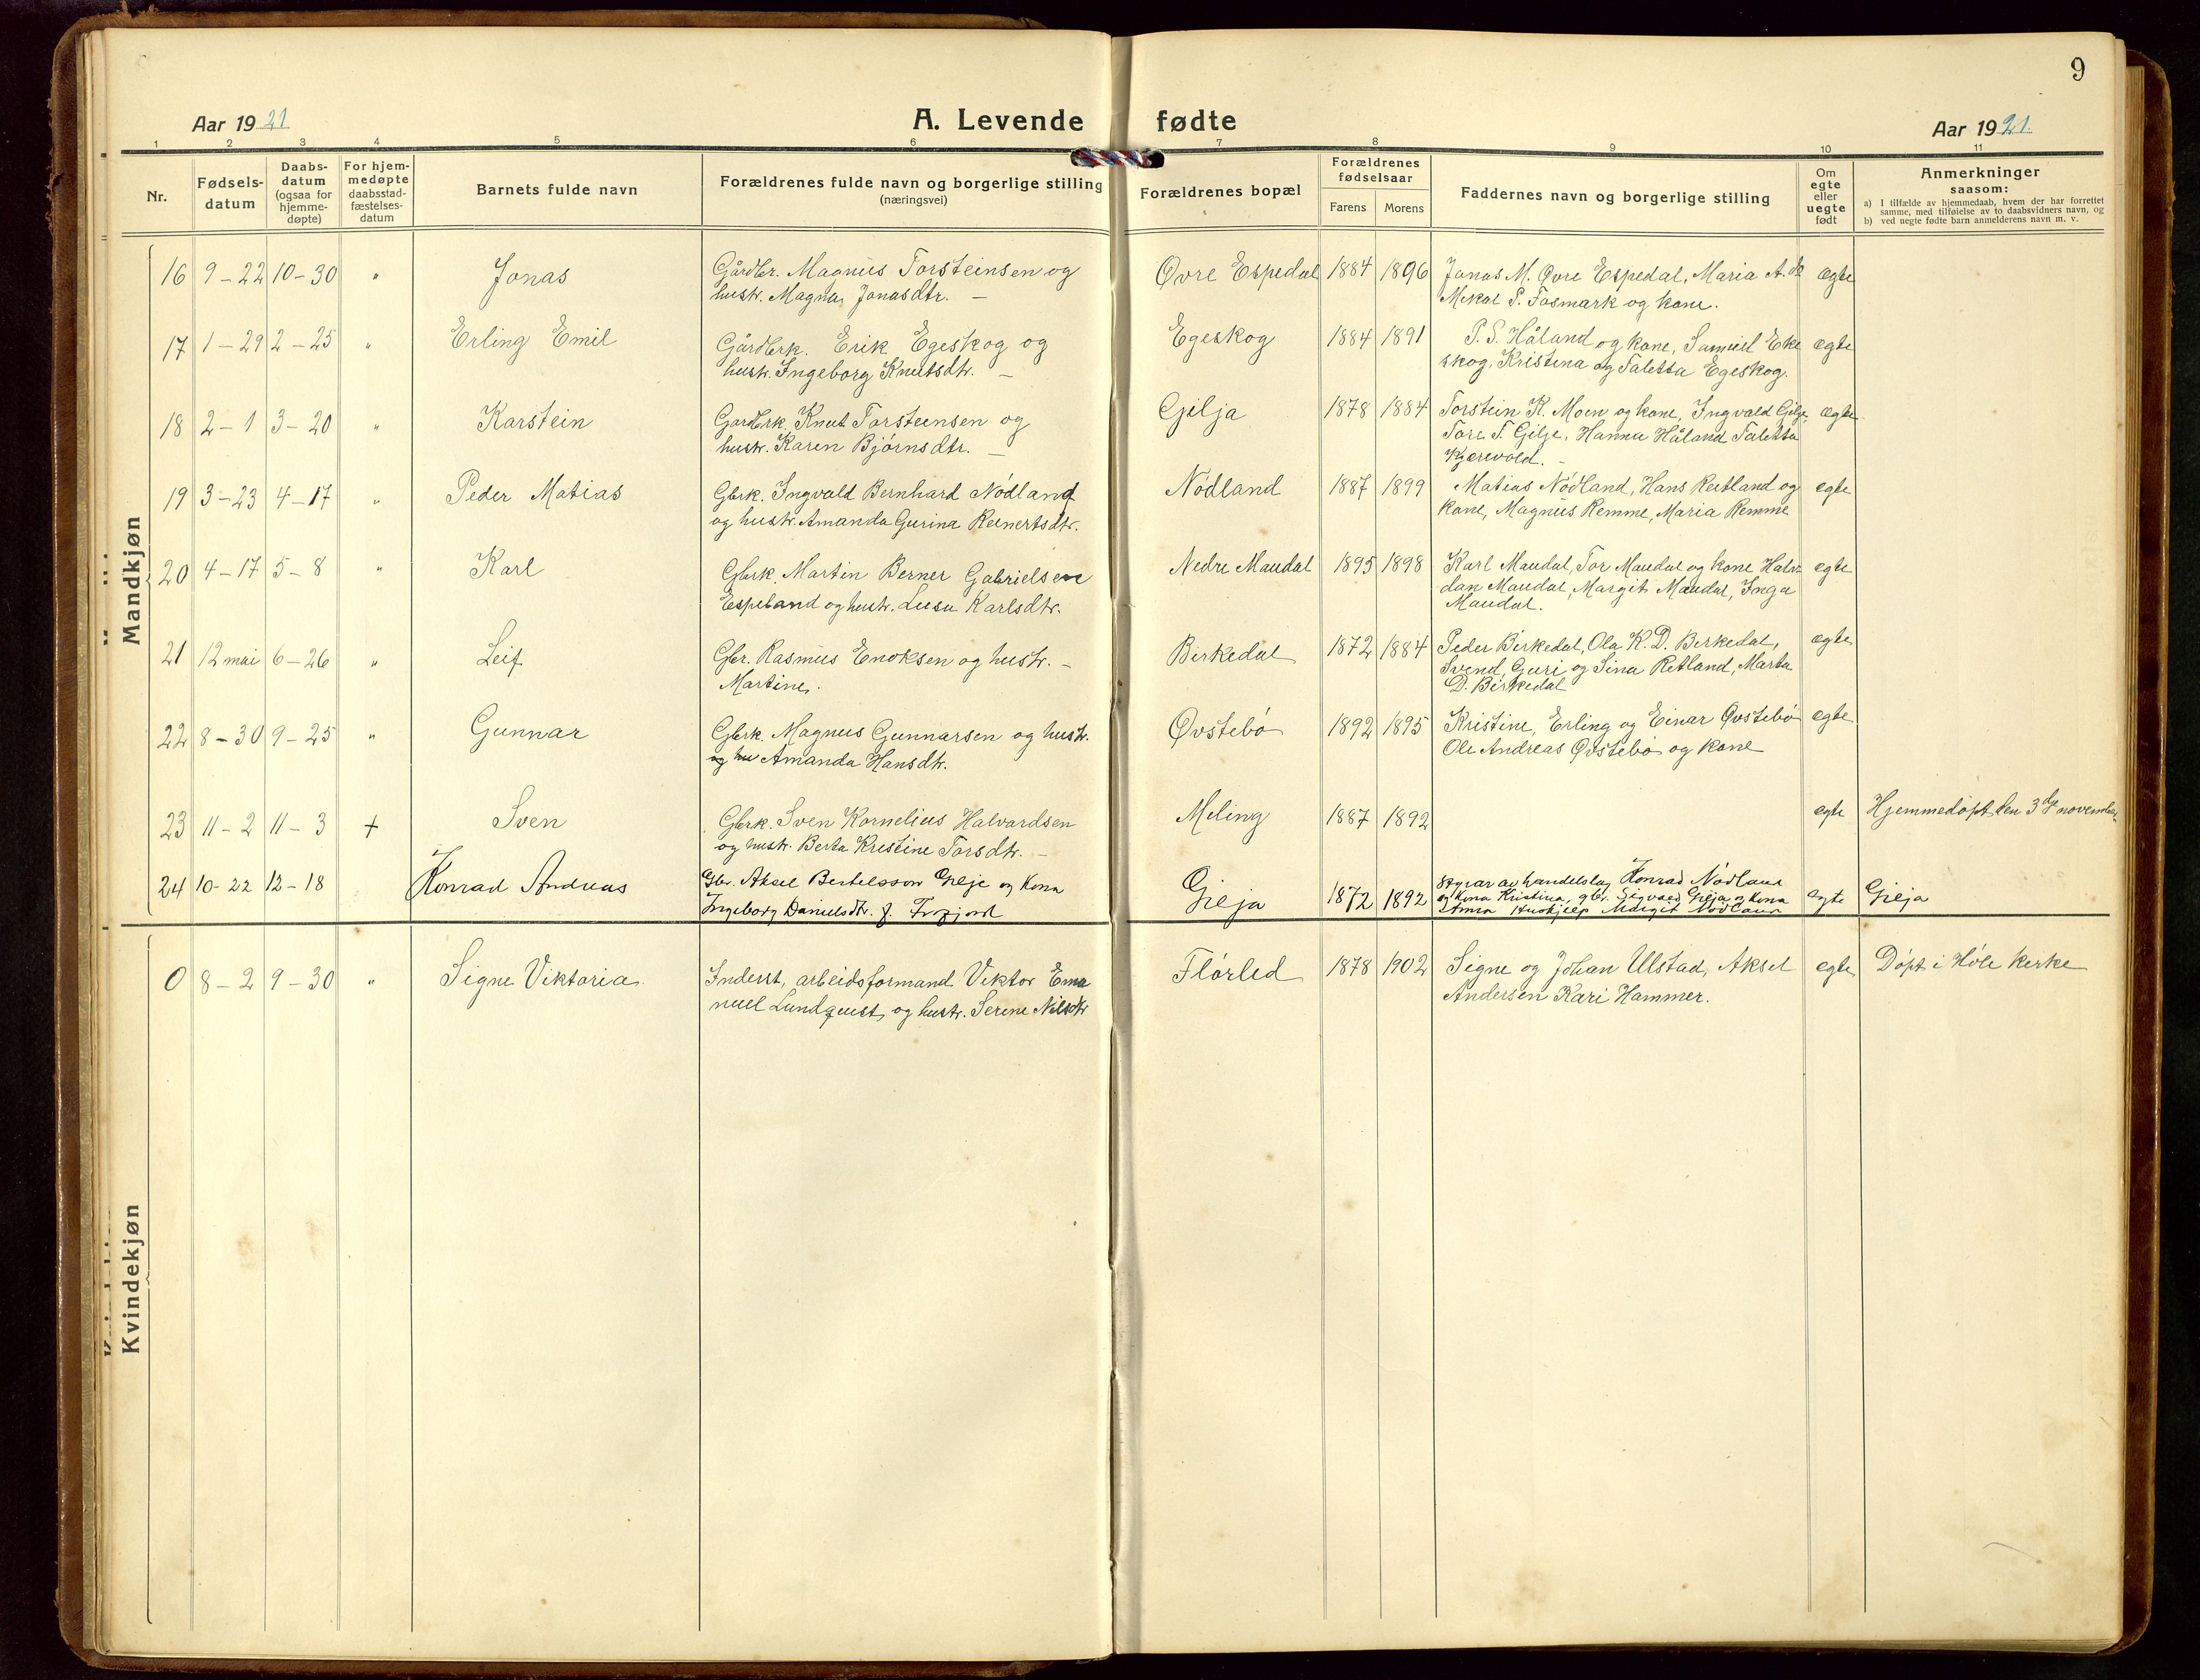 9
Aar 1921
A. Levende fødte
Aar 1921
1 2 3 4 5 6 7 8 9 10 11
Nr.
Fødsels-
datum
Daabs-
datum
(ogsaa for
hjemme-
døpte)
For hjem-
medøpte
daabsstad-
fæstelses-
datum
Barnets fulde navn
Forældrenes fulde navn og borgerlige stilling
(næringsvei)
Forældrenes bopæl
Forældrenes
fødselsaar
Farens Morens
Faddernes navn og borgerlige stilling
Om
egte
eller
uegte
født
Anmerkninger
saasom:
a) I tilfælde av hjemmedaab, hvem der har forrettet
samme, med tilføielse av to daabsvidners navn, og
b) ved uegte fødte barn anmelderens navn m. v.
Mandkjøn
16 9-22 10-30 " Jonas Gårdbr. Magnus Torsteinsen og Øvre Espedal 1884 1896 Jonas M. Øvre Espedal, Maria A. egte
hustr. Magna Jonasdtr. — Mikal S. Fosmark og kone.
17 1-29 2-25 " Erling Emil Gårdbrk. Erik Egeskog og Egeskog 1884 1891 P. S. Håland og kone, Samuel Eke egte
hustr. Ingeborg Knutsdtr. — skog, Kristena og Taletta Egeskog.
18 2-1 3-20 " Karstein Gardbrk. Knut Torsteensen og Gilja 1878 1884 Torstein K. Moen og kone, Ingvald Gilje, egte
hustr. Karen Bjørnsdtr. — Tore T. Gilje, Hanna Håland Taletta
Kjærvold. —
19 3-23 4-17 " Peder Matias Gbrk. Ingvald Bernhard Nødland Nødland 1887 1899 Matias Nødland, Hans Reitland og egte
og hustr. Amanda Gurina Reinertsdtr. kone, Magnus Remme, Maria Remme
20 4-17 5-8 " Karl Gbrk. Martin Berner Gabrielsen Nedre Maudal 1895 1898 Karl Maudal, Tor Maudal og kone Halv- egte
Espeland og hustr. Lusu Karlsdtr. dan Maudal, Margit Maudal, Inga
Maudal.
21 12 mai 6-26 " Leif Gbr. Rasmus Enoksen og hustr. — Birkedal 1872 1884 Peder Birkedal, Ola K. D. Birkedal, egte
Martine. Svend, Guri og Sina Retland, Marta
D. Birkedal
22 8-30 9-25 " Gunnar Gbrk. Magnus Gunnarsen og hustr. Øvstebø 1892 1895 Kristine, Erling og Einar Øvstebø egte
og hu Amanda Hansdtr. Ole Andreas Øvstebø og kone
23 11-2 11-3 + Sven Gbrk. Sven Kornelius Halvardsen Meling 1887 1892 egte Hjemmedøpt den 3dje november
og hustr. Berta Kristine Torsdtr. —
24 10-22 12-18 Konrad Andreas Gbr. Aksel Bertelsson Gilje og kona Gilja 1872 1892 Styrar av handelslag Konrad Nødland egte Gilja
Ingeborg Danielsdtr. f. Frafjord og kona Kristina, gbr. Sigvald Gilja og kona
Anna Hushjelp Margit Nødland
Kvindekjøn
0 8-2 9-30 " Signe Viktoria Inderst, arbeidsformand Viktor Ema Flørled 1878 1902 Signe og Johan Ulstad, Aksel egte Døpt i Høle kerke
nuel Lundquist, og hustr. Serine Nilsdtr Andersen Kari Hammer.